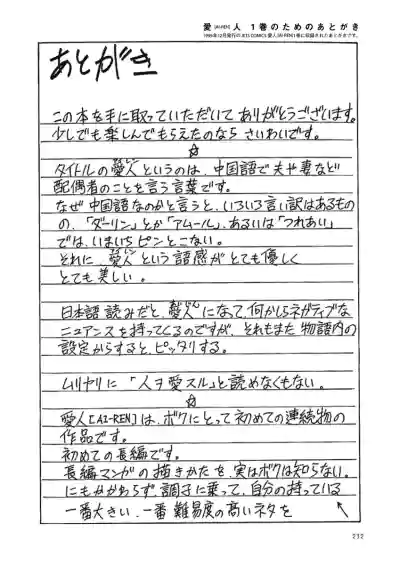 愛[AI-REN]人 1巻のためのあとがき
1999年12月発行のJETS COMICS 愛人[AI-REN]1巻に収録されたあとがきです。
あとがき
この本を手に取っていただいてありがとうございます。
少しでも楽しんでもらえたのなら さいわいです。
☆
タイトルの愛人というのは、中国語で夫や妻など
配偶者のことを言う言葉です。
なぜ中国語なのかと言うと、いろいろ言い訳はあるもの
の、「ダーリン」とか「アムール」、あるいは「つれあい」
では、いまいちピンとこない。
それに、愛人という語感がとても優しく
とても美しい。
日本語読みだと、愛人になって、何かしらネガティブな
ニュアンスを持ってくるのですが、それもまた物語内の
設定からすると、ピッタリする。
ムリヤリに「人ヲ愛スル」と読めなくもない。
☆
愛人[AI-REN]は、ボクにとって初めての連続物の
作品です。
初めての長編です。
長編マンガの描きかたを、実はボクは知らない。
にもかかわらず、調子に乗って、自分の持っている
一番大きい、一番難易度の高いネタを
212